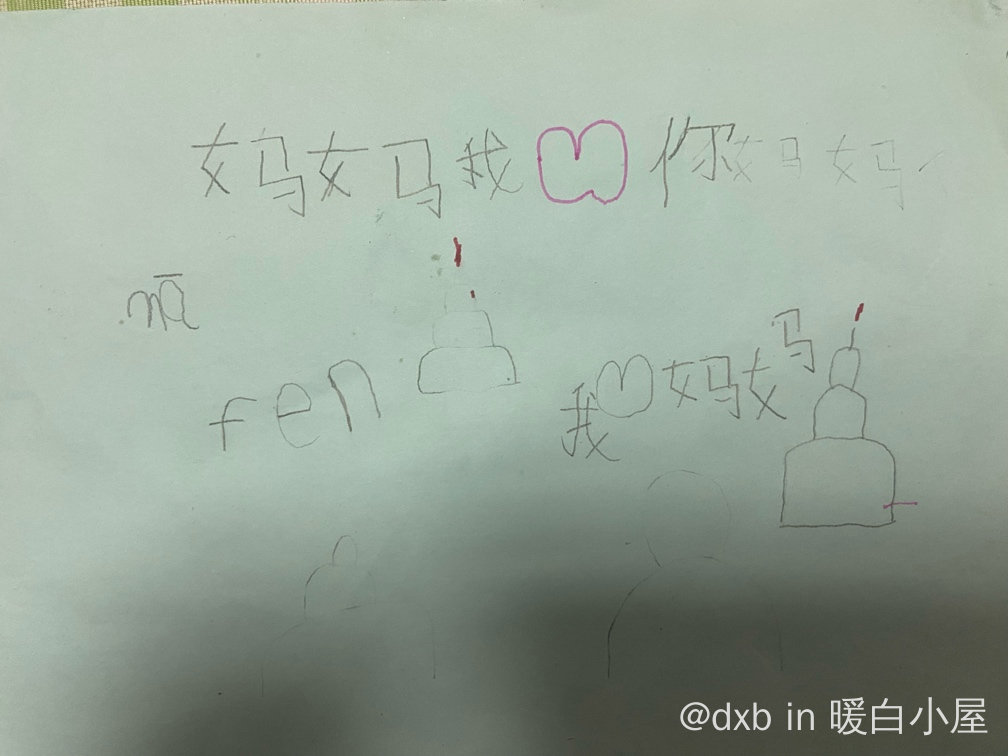 妈妈我你妈妈
nā
fen
我妈妈
@dxb in 暖白小屋